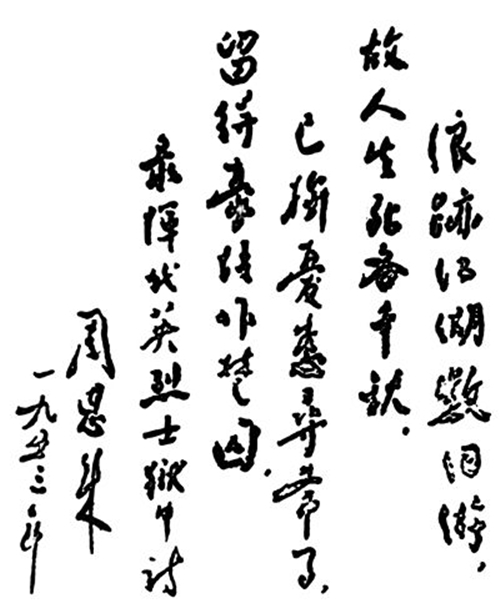 浪跡江湖數旧游，
故人生死各千秋，
已擯憂患尋常事，
留得豪情作楚囚，
录惲代英烈士獄中诗
周恩来
一九五三年